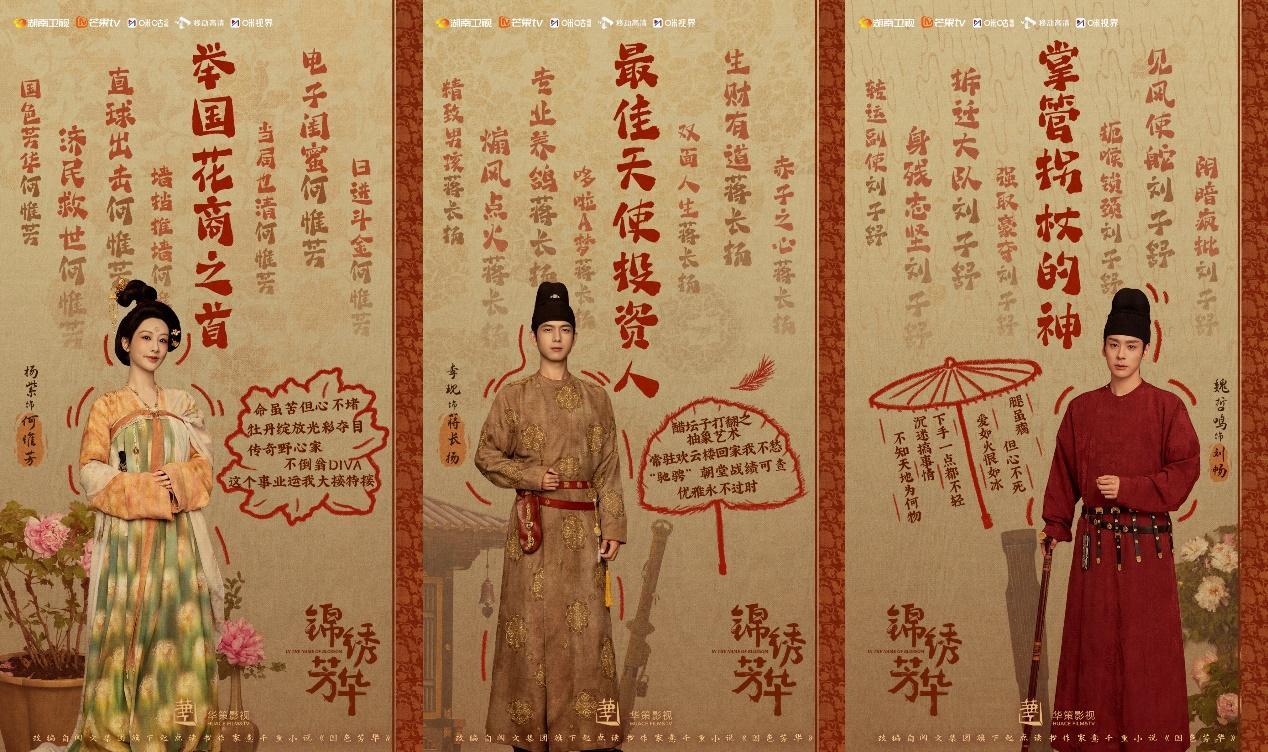 湖南卫视 芒果TV 咪咕 移动高清 咪视界
日进斗金何惟芳
电子闺蜜何惟芳
当局也清何惟芳
举国花商之首
墙挡推墙何
直球出击何惟芳
济民救世何惟芳
国色芳华何惟芳
杨紫 饰 何惟芳
命虽苦但心不堵
牡丹绽放光彩夺目
传奇野心家
不倒翁DIVA
这个事业运我大接特接
锦绣芳华
IN THE NAME OF BLOSSOM
华策影视
HUACE FILM&TV
改编自阅文集团旗下起点读书作家意千重小说《国色芳华》
湖南卫视 芒果TV 咪咕 移动高清 咪视界
赤子之心蒋长扬
生财有道蒋长扬
双面人生蒋长扬
最佳天使投资人
哆啦A梦蒋长扬
专业养鸽蒋长扬
煽风点火蒋长扬
精致男孩蒋长扬
李现 饰 蒋长扬
醋坛子打翻之
抽象艺术
常驻欢云楼回家我不愁
“驰骋”朝堂战绩可查
优雅永不过时
锦绣芳华
IN THE NAME OF BLOSSOM
华策影视
HUACE FILM&TV
改编自阅文集团旗下起点读书作家意千重小说《国色芳华》
湖南卫视 芒果TV 咪咕 移动高清 咪视界
阴暗疯批刘子舒
见风使舵刘子舒
扼喉锁颈刘子舒
掌管拐杖的神
强取豪夺刘子舒
拆迁大队刘子舒
身残志坚刘子舒
转运副使刘子舒
魏哲鸣 饰 刘畅
腿虽瘸 但心不死
爱如火恨如冰
下手一点都不轻
沉迷搞事情
不知天地为何物
锦绣芳华
IN THE NAME OF BLOSSOM
华策影视
HUACE FILM&TV
改编自阅文集团旗下起点读书作家意千重小说《国色芳华》